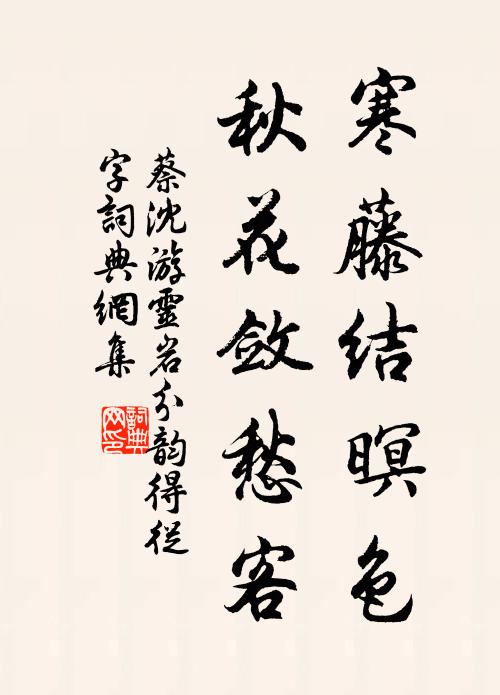 寒藤結暝色
秋花斂愁客
蔡沈游靈岩分韵得從
字詞典網集
詞典网印